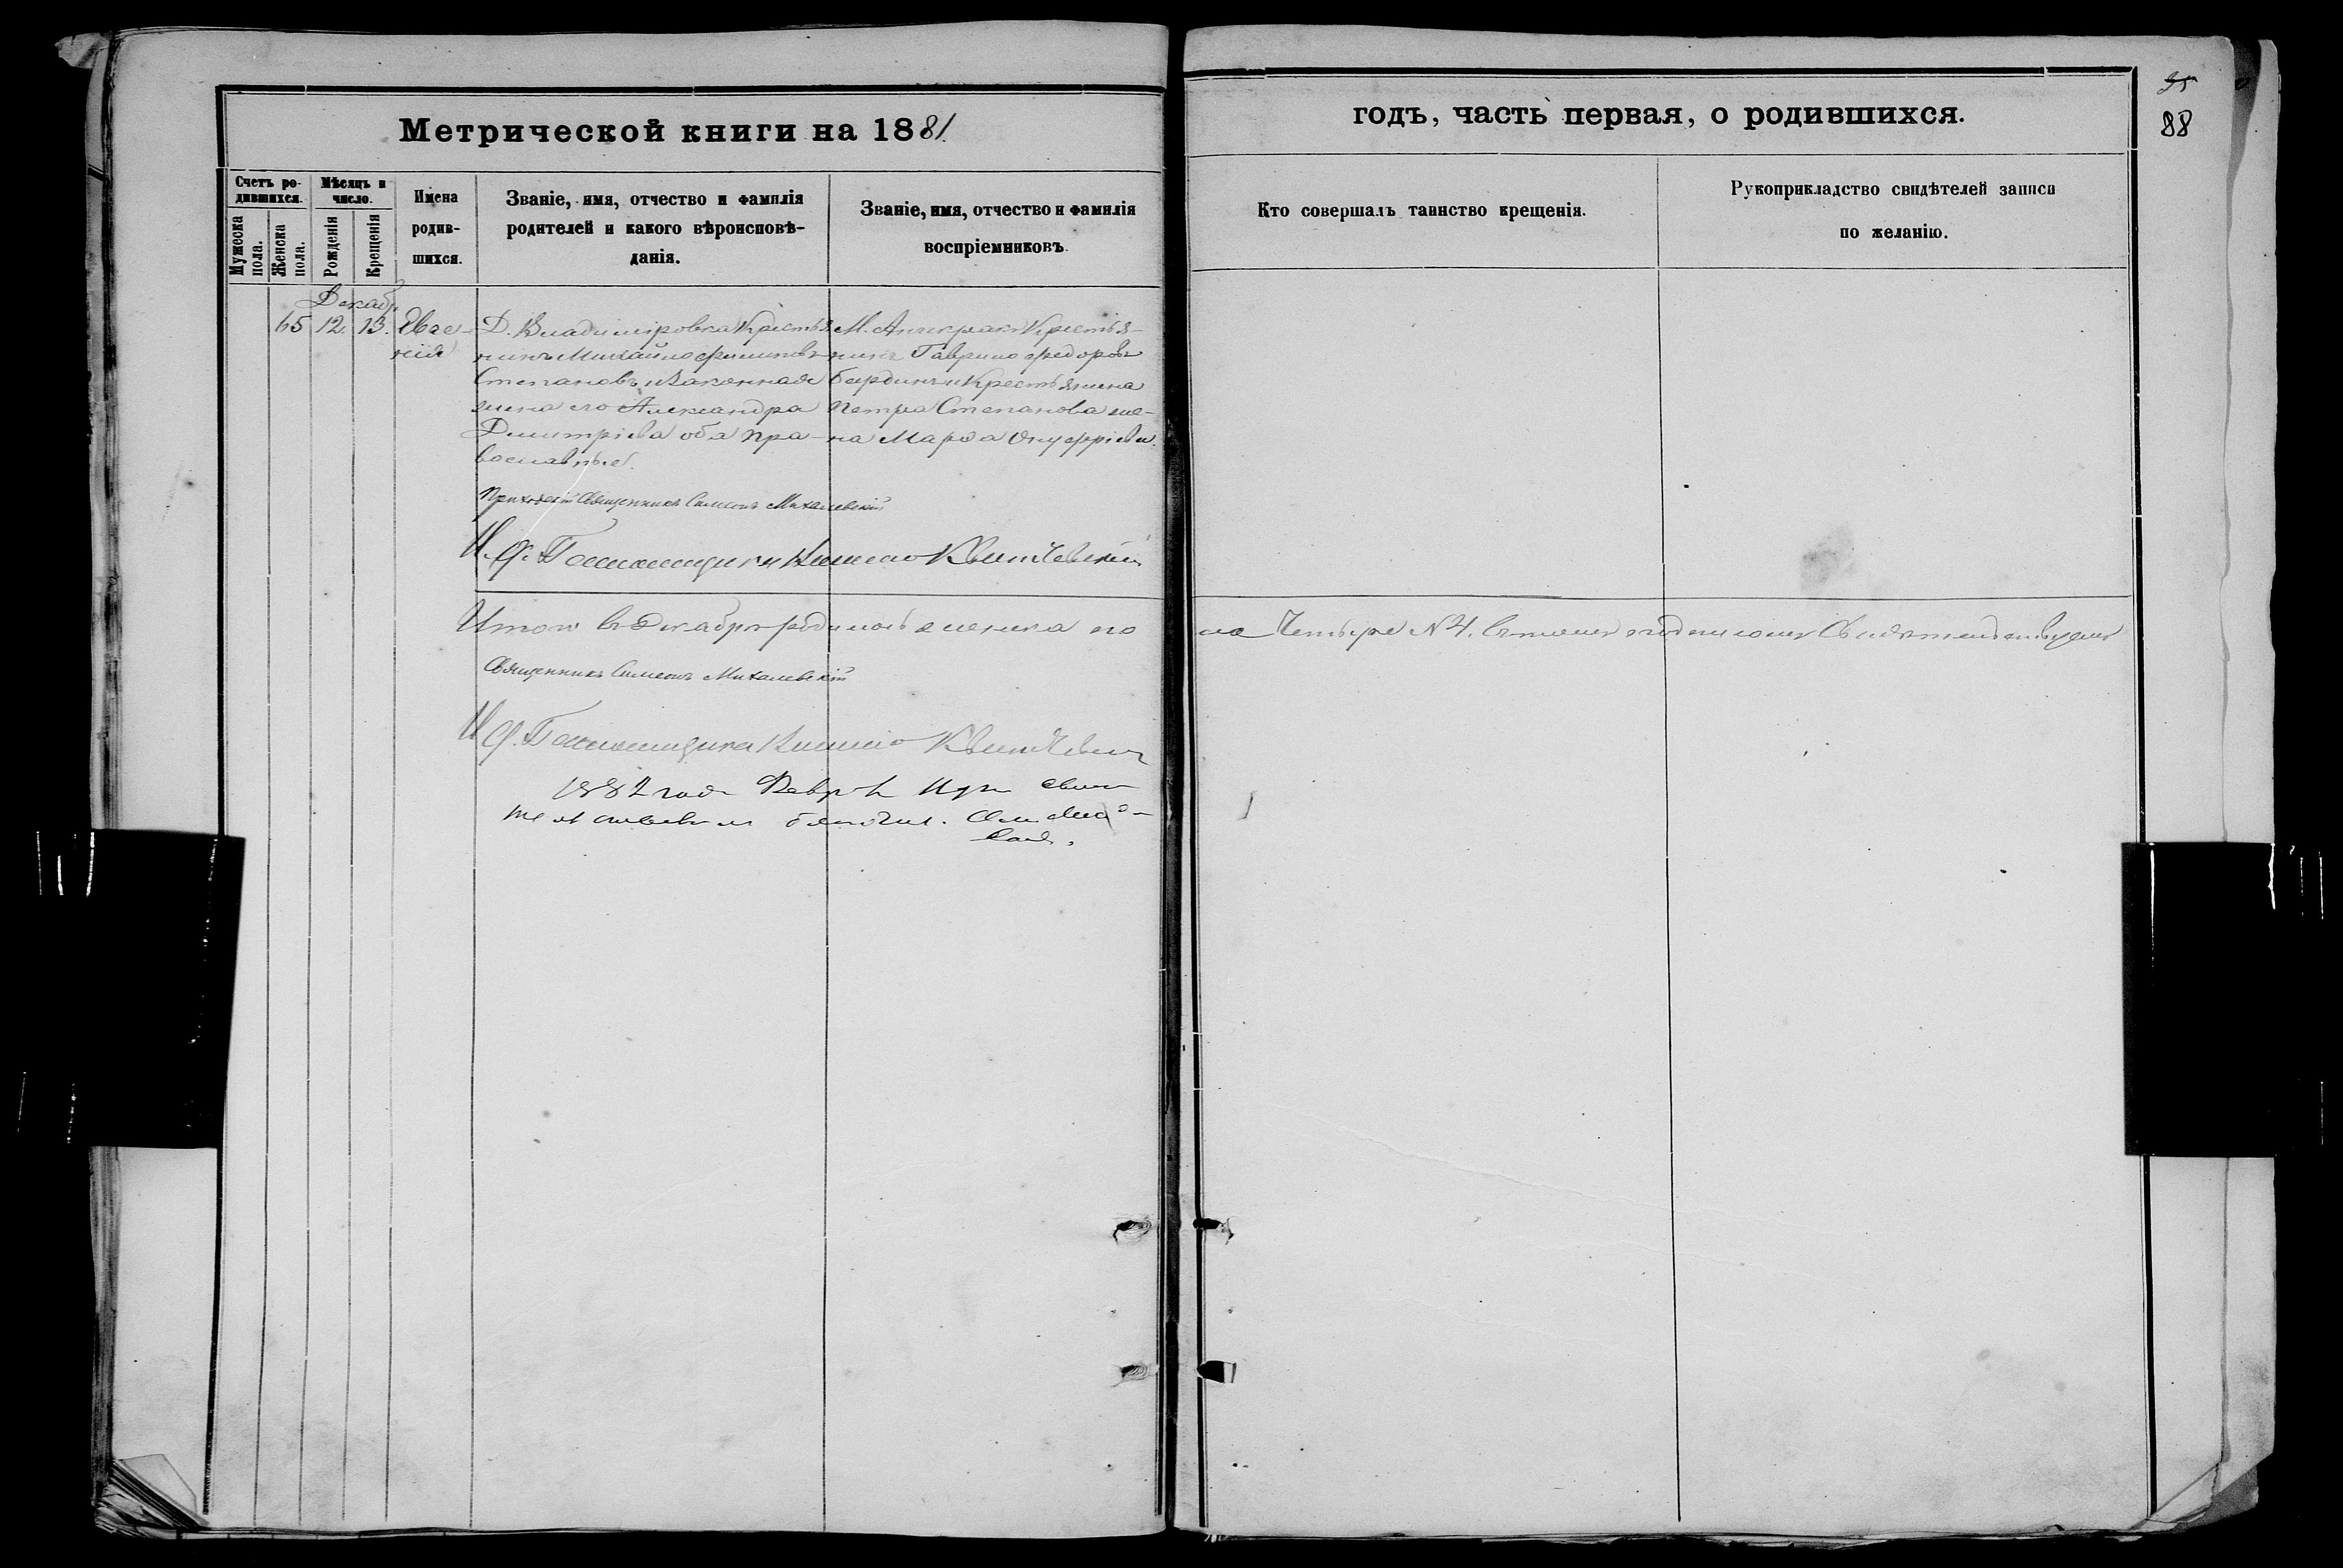 Метрической книги на 1881.
годъ, часть первая, о родившихся.
35
88
Счетъ ро-
дившихся.
Мѣсяцъ и
число.
Мужеска
пола.
Женска
пола.
Рожденія
Крещенія
Имена
родив-
шихся.
Званіе, имя, отчество и фамилія
родителей и какого вѣроисповѣ-
данія.
Званіе, имя, отчество и фамилія
воспріемниковъ.
Кто совершалъ таинство крещенія.
Рукоприкладство свидѣтелей записи
по желанію.
Декабр.
65 12. 13. Евге-
нія
Д. Владиміровка Крестья
нинъ Михайло Филиповъ
Степановъ и законная
жена его Александра
Дмитріева оба пра-
вославные.
М. Крестья-
нинъ Гаврило Федоровъ
и Крестьянина
Петра Степанова же-
на Марѳа Онуфріева.
Приходскій Священникъ Симеонъ Михалевскій
И. д. Псаломщика
Итого въ Декабрѣ родилось женска по
ла Четыре №4. въ томъ и подписомъ Свидетельствуемъ
Священникъ Симеонъ Михалевскій
И. д. Псаломщика
1882 года